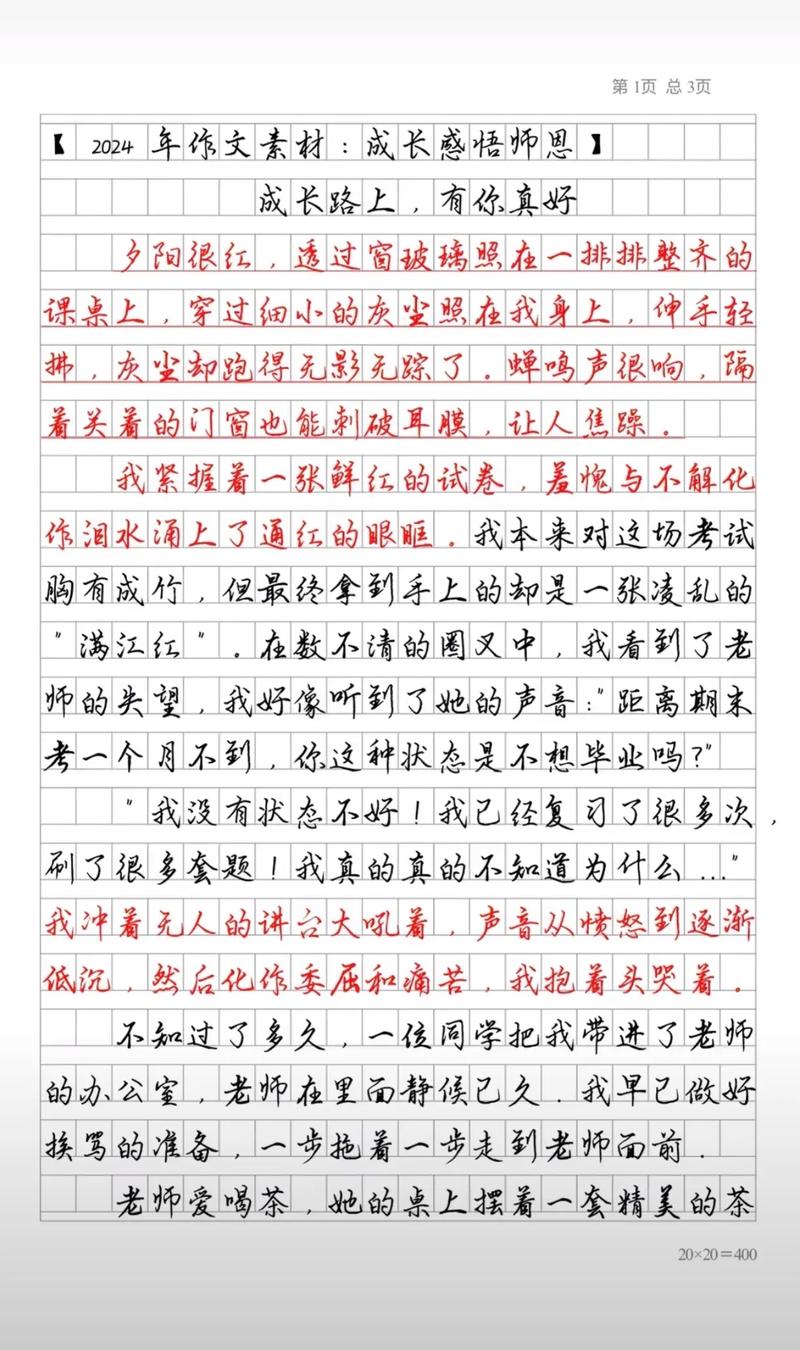 第1页 总3页
【 2024 年作文素材：成长感悟师恩 】
成长路上，有你真好
夕阳很红，透过窗玻璃照在一排排整齐的
课桌上，穿过细小的灰尘照在我身上，伸手轻
拂，灰尘却跑得无影无踪了。蝉鸣声很响，隔
着关着的门窗也能刺破耳膜，让人焦躁。
我紧握着一张鲜红的试卷，羞愧与不解化
作泪水涌上了通红的眼眶。我本来对这场考试
胸有成竹，但最终拿到手上的却是一张凌乱的
"满江红"。在数不清的圈叉中，我看到了老
师的失望，我好像听到了她的声音："距离期末
考一个月不到，你这种状态是不想毕业吗？"
"我没有状态不好！我已经复习了很多次，
刷了很多套题！我真的真的不知道为什么…"
我冲着无人的讲台大吼着，声音从愤怒到逐渐
低沉，然后化作委屈和痛苦，我抱着头哭着。
不知过了多久，一位同学把我带进了老师
的办公室，老师在里面静候已久．我早已做好
挨骂的准备，一步拖着一步走到老师面前．
老师爱喝茶，她的桌上摆着一套精美的茶
20×20＝400